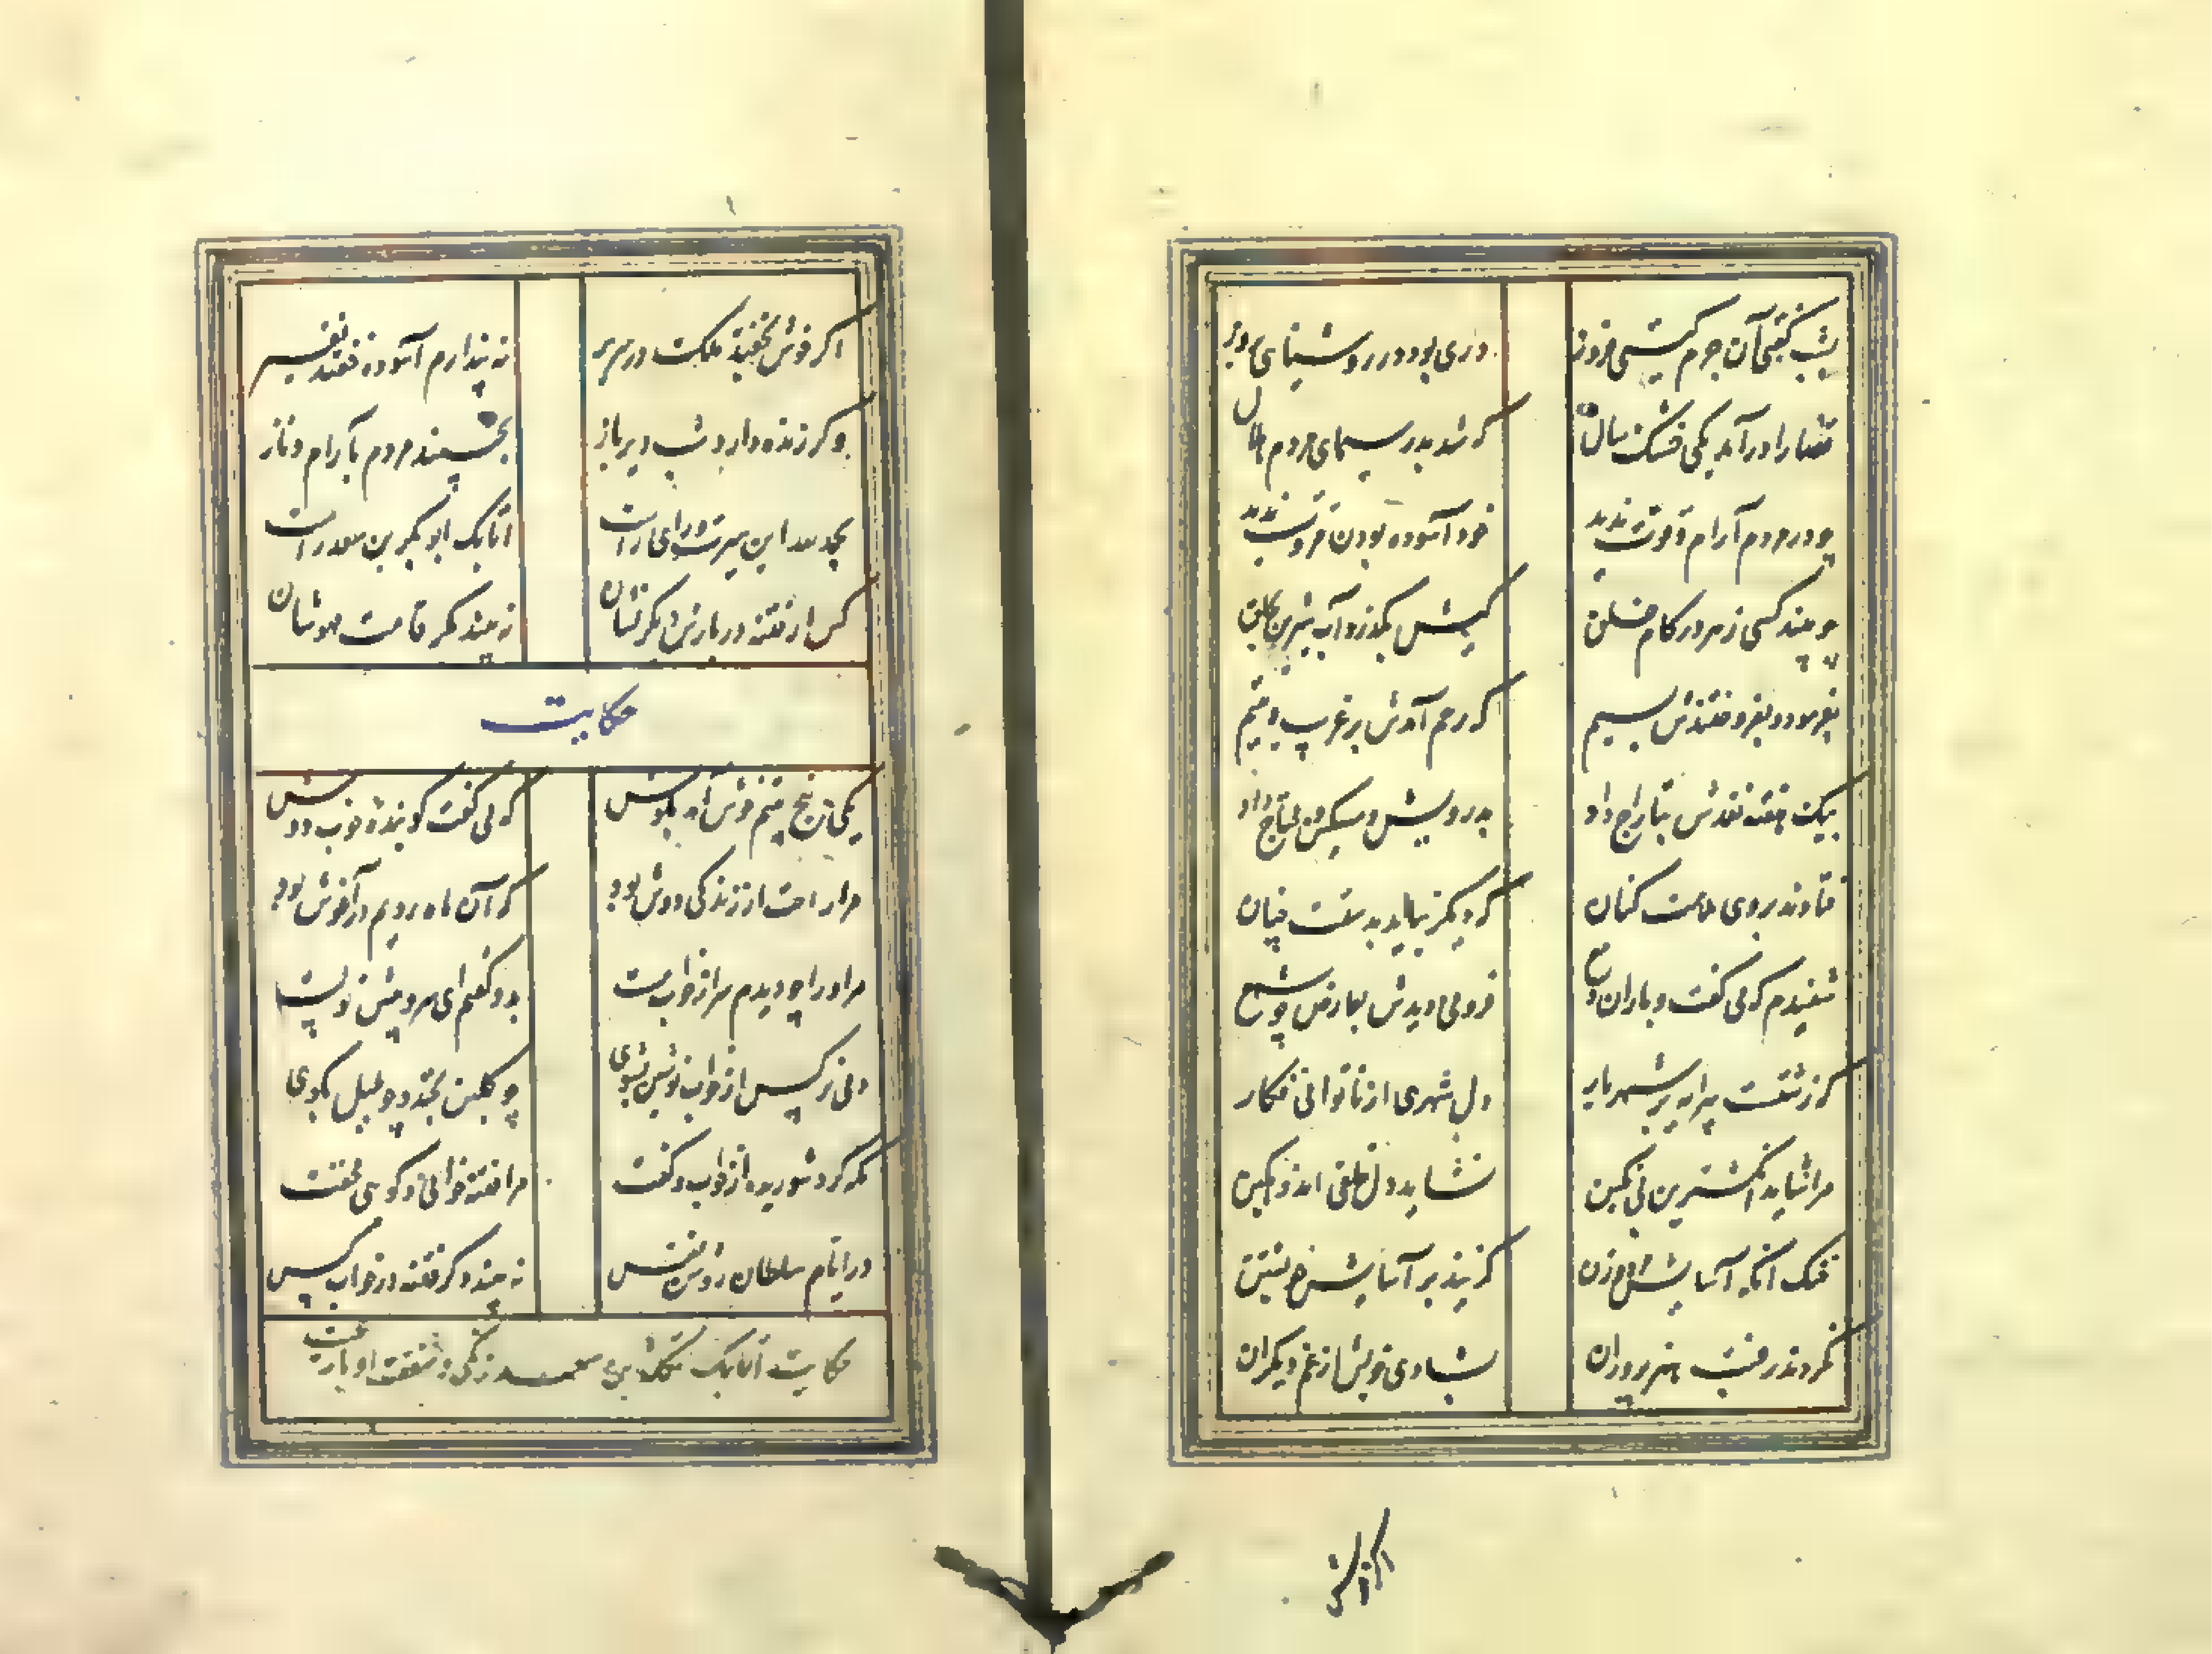 بشب گفتی آن جرم گیتی فروز دری بود در روشنیائی روز
قضا را درآمد یکی خشک سال که شد بدر سیمای مردم هلال
چو در مردم آرام و قوت ندید خود آسوده بودن مروت ندید
چو بیند کسی زهر در کام خلق کیش بگذرد آب شیرین بحلق
بفرمود و بفروختندش بسیم که رحم آمدش بر غریب و یتیم
بیک هفته نقدش بتاراج داد بدرویش و مسکین و محتاج داد
فتادند بروی ملامت کنان که دیگر نیاید بدستت چنان
شنیدم که می گفت و باران دمع فرو می دویدش بعارض چو شمع
که زشتست پیرایه بر شهریار دل شهری از ناتوانی فکار
مرا شاید انگشترین بی نگین نشاید دل خلقی اندوهگین
خنک آنکه آسایش مرد و زن گزیند بر آسایش خویشتن
نکردند رغبت هنرپروران بشادی خویش از غم دیگران
اگر خوش
اگر خوش بخفتد ملک در سریر نه پندارم آسوده خفتد فقیر
وگر زنده دارد شب دیر باز بخسپند مردم بآرام و ناز
بحمدالله این سیرت و رای راست اتابک ابوبکر بن سعد راست
کس از فتنه در پارس دیگر نشان نه بیند مگر قامت مهوشان
حکایت
یکی پنج بیتم خوش آمد بگوش که می گفت گوینده خوب دوش
مرا راحت از زندگی دوش بود که آن ماه رویم در آغوش بود
مر او را چو دیدم سر از خواب مست بدو گفتم ای سرو پیش تو پست
دمی نرگس از خواب نوشین بشوی چو گلبن بخند و چو بلبل بگوی
نگه کرد شوریده از خواب و گفت مرا فتنه خوانی و گوئی مخفت
در ایام سلطان روشن نفس نه بیند دگر فتنه در خواب کس
حکایت اتابک تکله بن سعد زنگی و شفقت او با رعیت